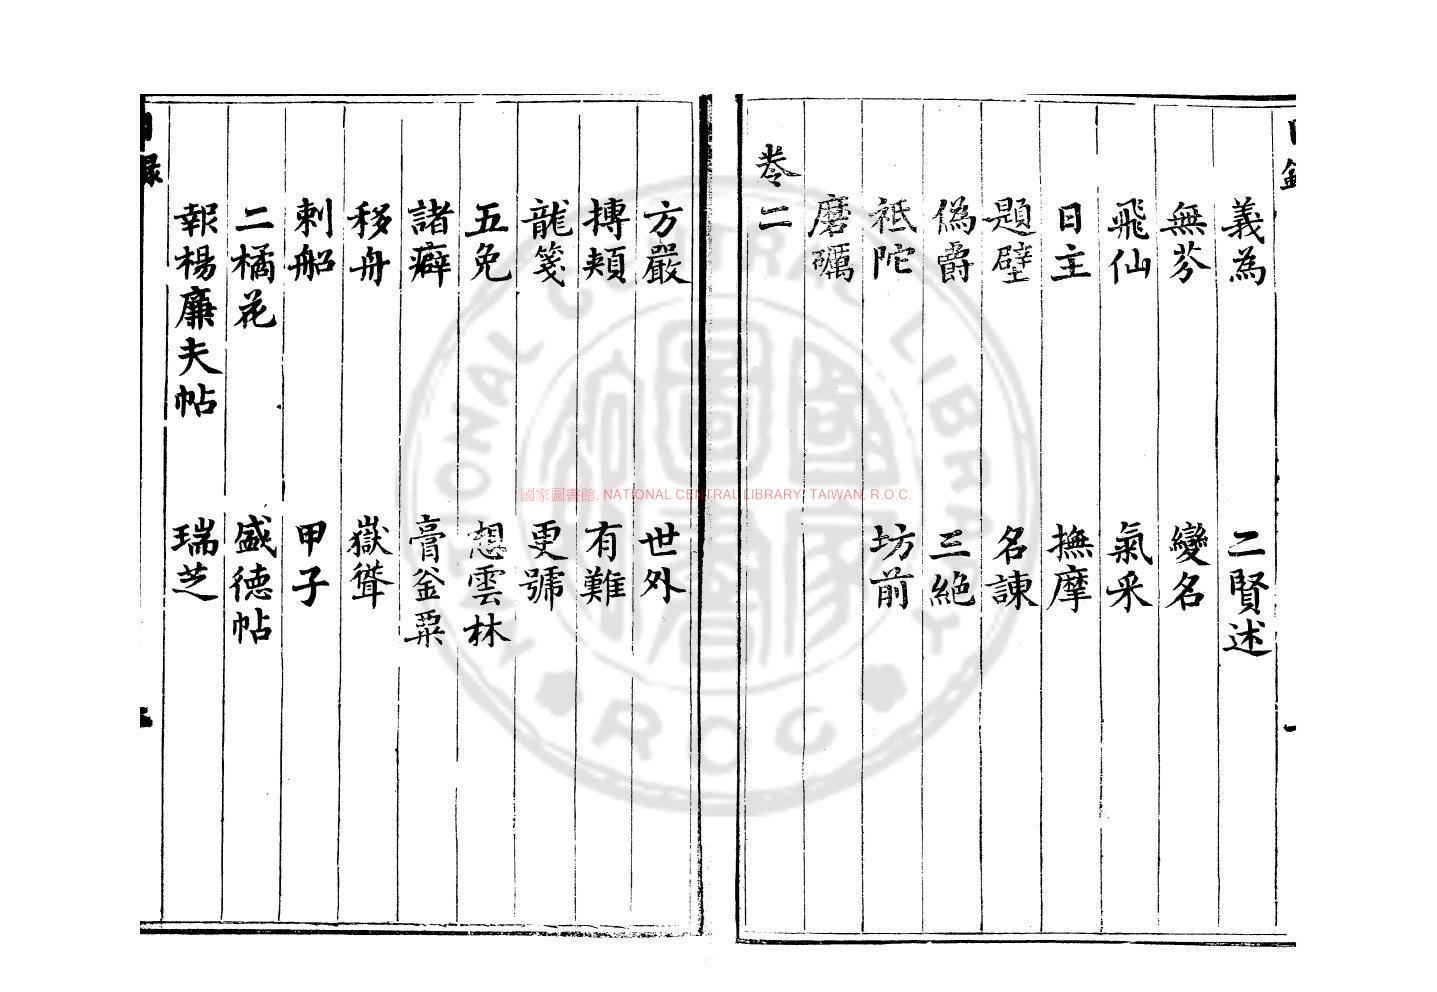 義為　二賢述
無芬　變名
飛仙　氣采
日主　撫摩
題壁　名諫
偽爵　三絕
祗陀　坊前
磨礪
卷二
方嚴　世外
摶頰　有難
龍箋　更號
五免　想雲林
諸癖　膏釜粟
移舟　嶽聳
刺船　甲子
二橘花　盛德帖
報楊廉夫帖　瑞芝
國家圖書館, NATIONAL CENTRAL LIBRARY, TAIWAN, R.O.C.
NATIONAL CENTRAL LIBRARY
R.O.C.